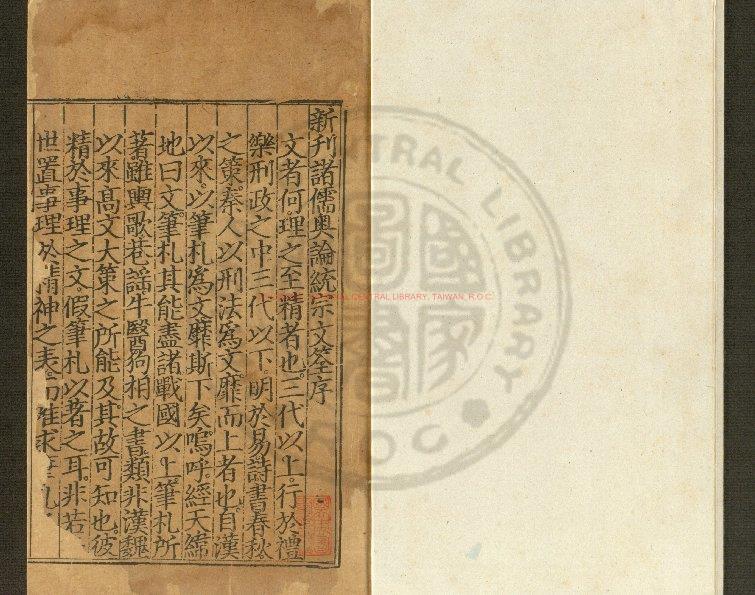 新刊諸儒奧論統宗文筌序
文者何理之至精者也三代以上行於禮
樂刑政之中三代以下明於易詩書春秋
之策秦人以刑法為文靡而上者也自漢
以來以筆札為文靡斯下矣嗚呼經天緯
地曰文筆札其能盡諸戰國以上筆札所
著雖輿歌巷謡牛醫狗相之書類非漢魏
以來高文大策之所能及其故可知也彼
精於事理之文假筆札以著之耳非若
世置事理於精神之表
CENTRAL LIBRARY
R.O.C
CENTRAL LIBRARY, TAIWAN, R.O.C